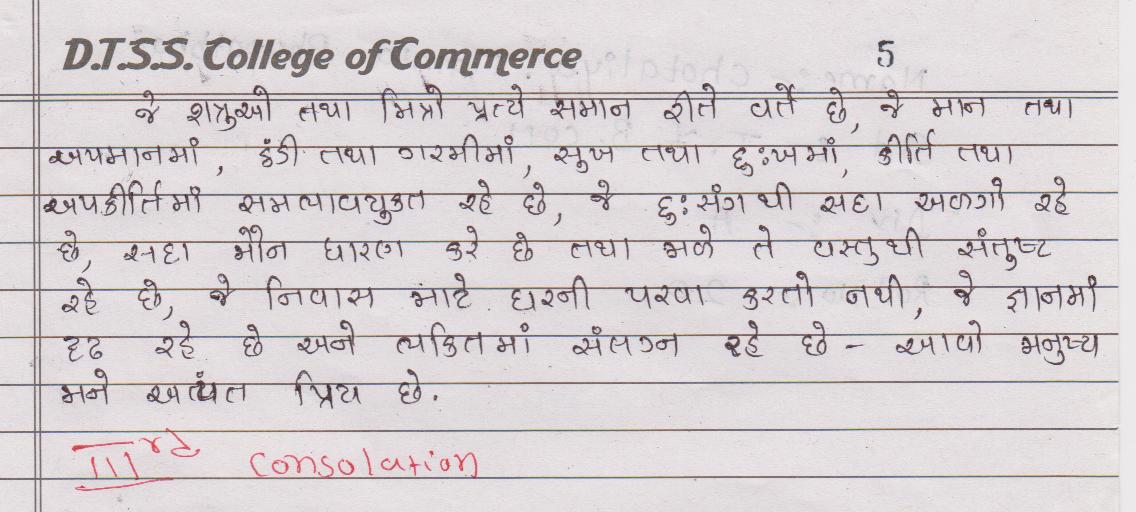 D.T.S.S. College of Commerce 5
જે શત્રુઓ તથા મિત્રો પ્રત્યે સમાન રીતે વર્તે છે, જે માન તથા
અપમાનમાં, ઠંડી તથા ગરમીમાં, સુખ તથા દુઃખમાં, કીર્તિ તથા
અપકીર્તિમાં સમભાવયુક્ત રહે છે, જે દુઃસંગથી સદા અળગો રહે
છે, સદા મૌન ધારણ કરે છે તથા મળે તે વસ્તુથી સંતુષ્ટ
રહે છે, જે નિવાસ માટે ઘરની પરવા કરતો નથી, જે જ્ઞાનમાં
દૃઢ રહે છે અને ભક્તિમાં સંલગ્ન રહે છે – આવો મનુષ્ય
મને અત્યંત પ્રિય છે.
IIIrd Consolation